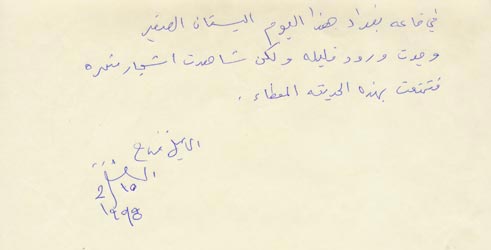 في قاعه بغداد بهذا اليوم البستان الصغير
وجدت ورود قليله ولكن شاهدت اشجار مثمره
فتمتعت بهذه الحديقه المعطاء .
2/10
1998